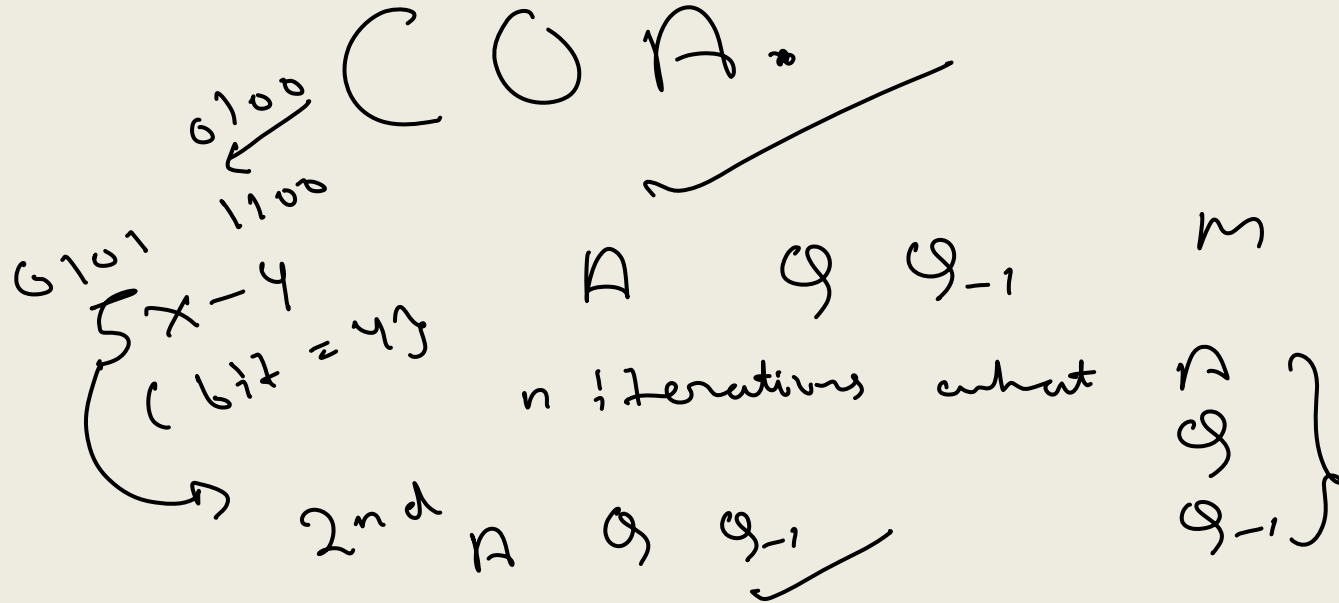 COA.
0100
1100
0101
5 x - 4
(bit = 4)
A Q Q-1 M
n iterations what A
Q
Q-1
2nd A Q Q-1